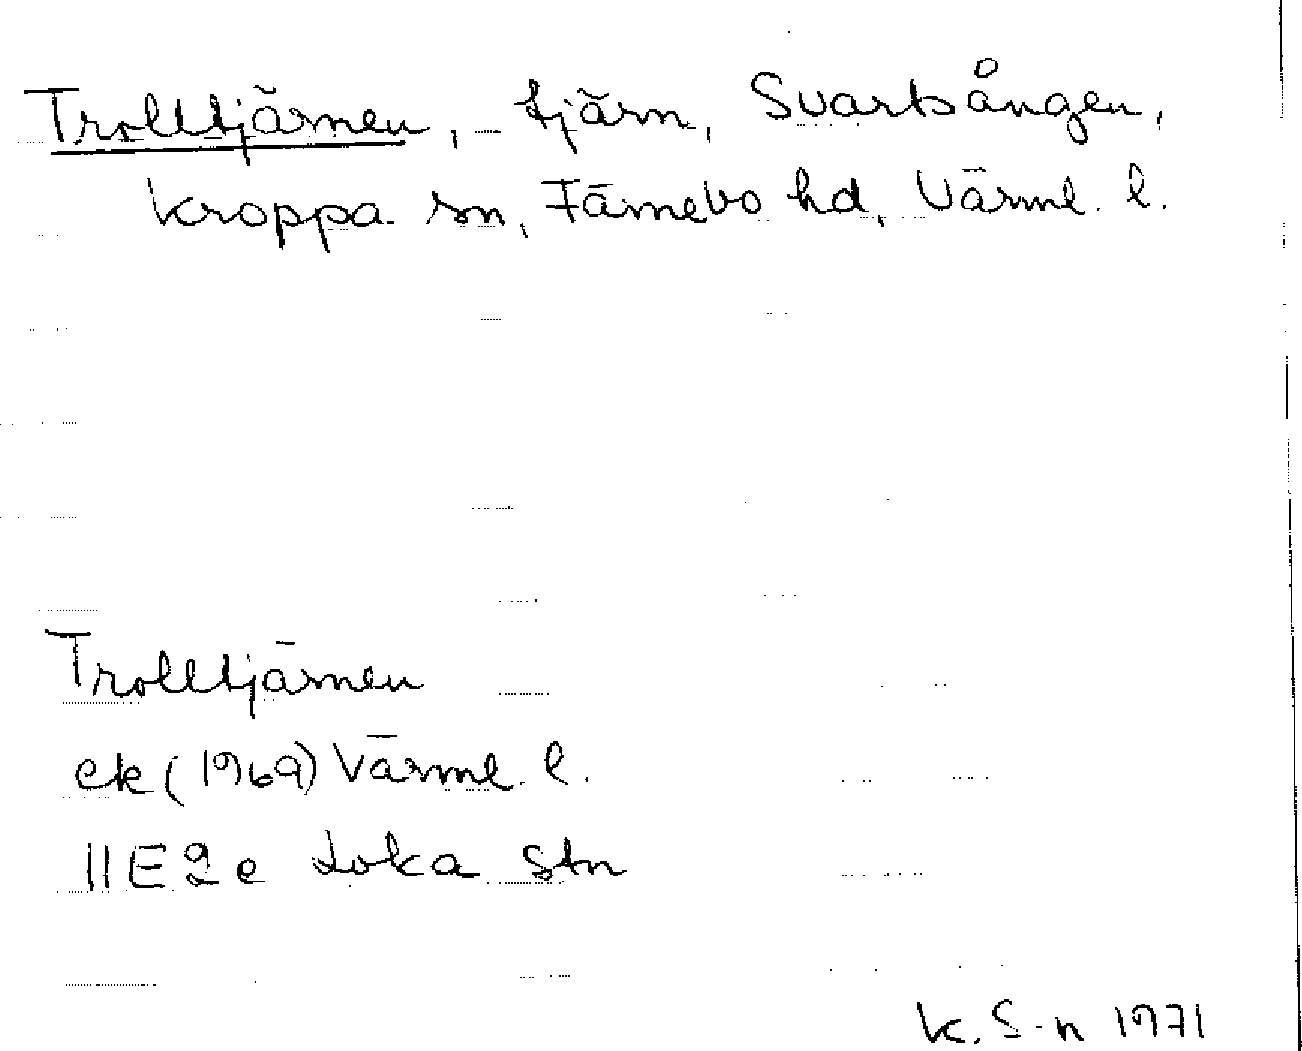 Trolltjärnen, tjärn, Svartsången,
Kroppa sn, Färnebo hd, Värml. l.
Trolltjärnen
ek (1969) Värml. l.
11E2e Loka stn
K. S-n 1971